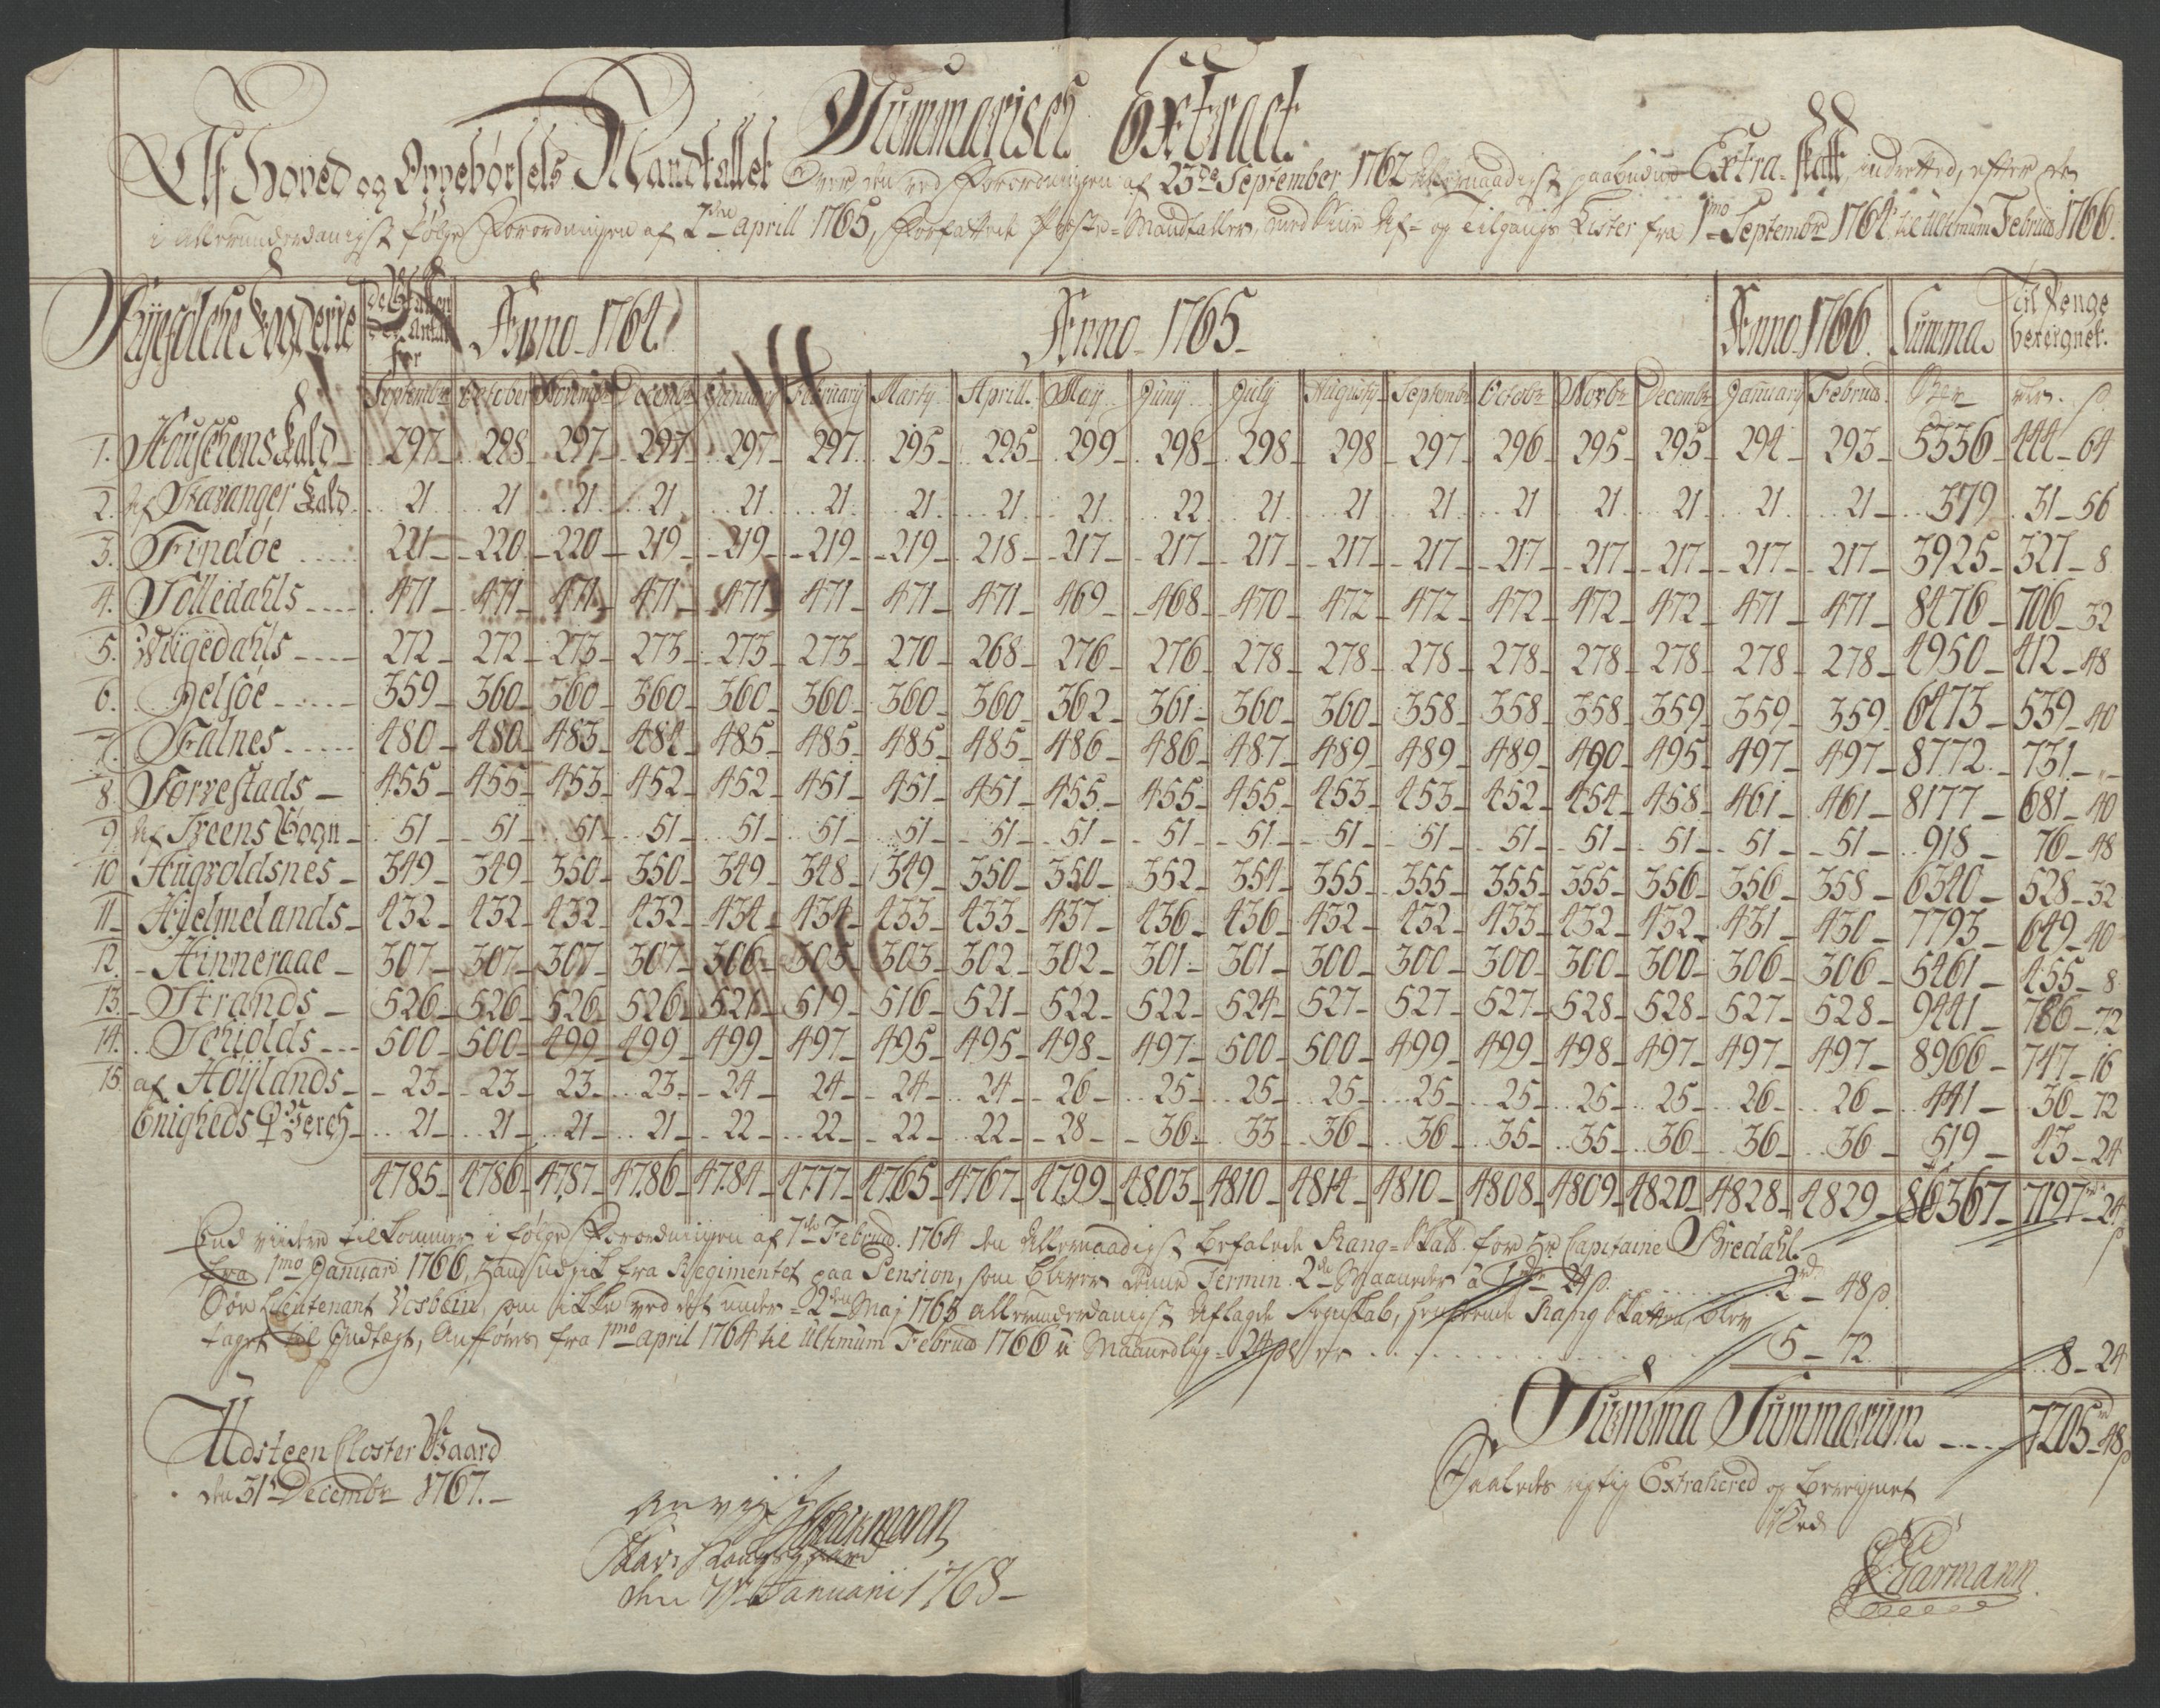 Summarisch Extract
Af Hoved og Oppebørsels Mandtallet Over den ved Forordningen af 23de September 1762 Allernaadigst paabudne Extra-Skatt, indrettet, efter de
i allerunderdanigst følge Forordningen af 2den aprill 1765, Forfattede Mandtaller, med Af- og Tilgangs Lister fra 1mo Septembr 1764 til Ultimum Februar 1766.
Ryefylche Fogderie | Anno 1764 | Anno 1765 | Anno 1766 | Summa | Til Penge beregnet.
Septembr October Novembr Decembr Januarij Februarij Martij Aprill May Junij July Augustij Septembr Octobr Novbr Decembr Januarij Februar rdr. s
1. Kald 297 298 297 297 297 297 295 295 299 298 298 298 297 296 295 295 294 293 5336 444 64
2. af Stavanger Kald 21 21 21 21 21 21 21 21 21 22 21 21 21 21 21 21 21 21 379 31 56
3. Findøe 221 220 220 219 219 219 219 218 217 217 217 217 217 217 217 217 217 217 3925 327 8
4. Sølledahls 471 471 471 471 471 471 471 471 469 468 470 472 472 472 472 472 471 471 8476 706 32
5. Wigedahls 272 272 273 273 273 273 270 268 276 276 278 278 278 278 278 278 278 278 4950 412 48
6. Jelsøe 359 360 360 360 360 360 360 360 362 361 360 360 358 358 358 359 359 359 6473 539 40
7. Falnes 480 480 483 484 485 485 485 485 486 486 487 489 489 489 490 495 497 497 8772 731 "
8. Torrestads 455 455 453 452 452 451 451 451 455 455 455 453 453 452 454 458 461 461 8177 681 40
9. af Sveens Sogn 51 51 51 51 51 51 51 51 51 51 51 51 51 51 51 51 51 51 918 76 48
10 Augvoldsnes 349 349 350 350 349 348 349 350 350 352 354 355 355 355 355 356 356 358 6340 528 32
11 Hielmelands 432 432 432 432 434 434 433 433 437 436 436 432 432 433 432 432 431 430 7793 649 40
12. Hinneraae 307 307 307 307 306 305 303 302 302 301 301 300 300 300 300 300 306 306 5461 455 8
13. Strands 526 526 526 526 521 519 516 521 522 522 524 527 527 527 528 528 527 528 9441 786 72
14. Schiolds 500 500 499 499 499 497 495 495 498 497 500 500 499 499 498 497 497 497 8966 747 16
15 af Høylands 23 23 23 23 24 24 24 24 26 25 25 25 25 25 25 25 26 26 441 36 72
Enigheds Verch 21 21 21 21 22 22 22 22 28 36 33 36 36 35 35 36 36 36 519 43 24
4785 4786 4787 4786 4784 4777 4765 4767 4799 4803 4810 4814 4810 4808 4809 4820 4828 4829 86367 7197 24
End videre tilkommer i følge Forordningen af 7de Februar. 1764 den Allernaadigst befalede Rang-Skatt for Hr Capitaine Bredahl
fra 1mo Januari 1766, hand udgik fra Regimentet paa Pension, som bliver denne Termin 2de Maaneder a 1 rdr 24 s 2 48 s.
Søe Lieutenant Vesbein, som ikke ved det under 2den Maj 1765 allerunderdanigst Aflagde Regnskab, Rang Skatten blev
taget til Indtegt, Anføres fra 1mo april 1764 til Ultimum Februar 1766 a Maanedlig 24 s er 5 72 8 24
Summa Summarum 7205 48 s
Udsteen Closter Gaard
den 31te Decembr 1767.
Saaledes rigtig Extraheret og beregnet
Ved
Garmann
den 7de Januarii 1768
Garmann